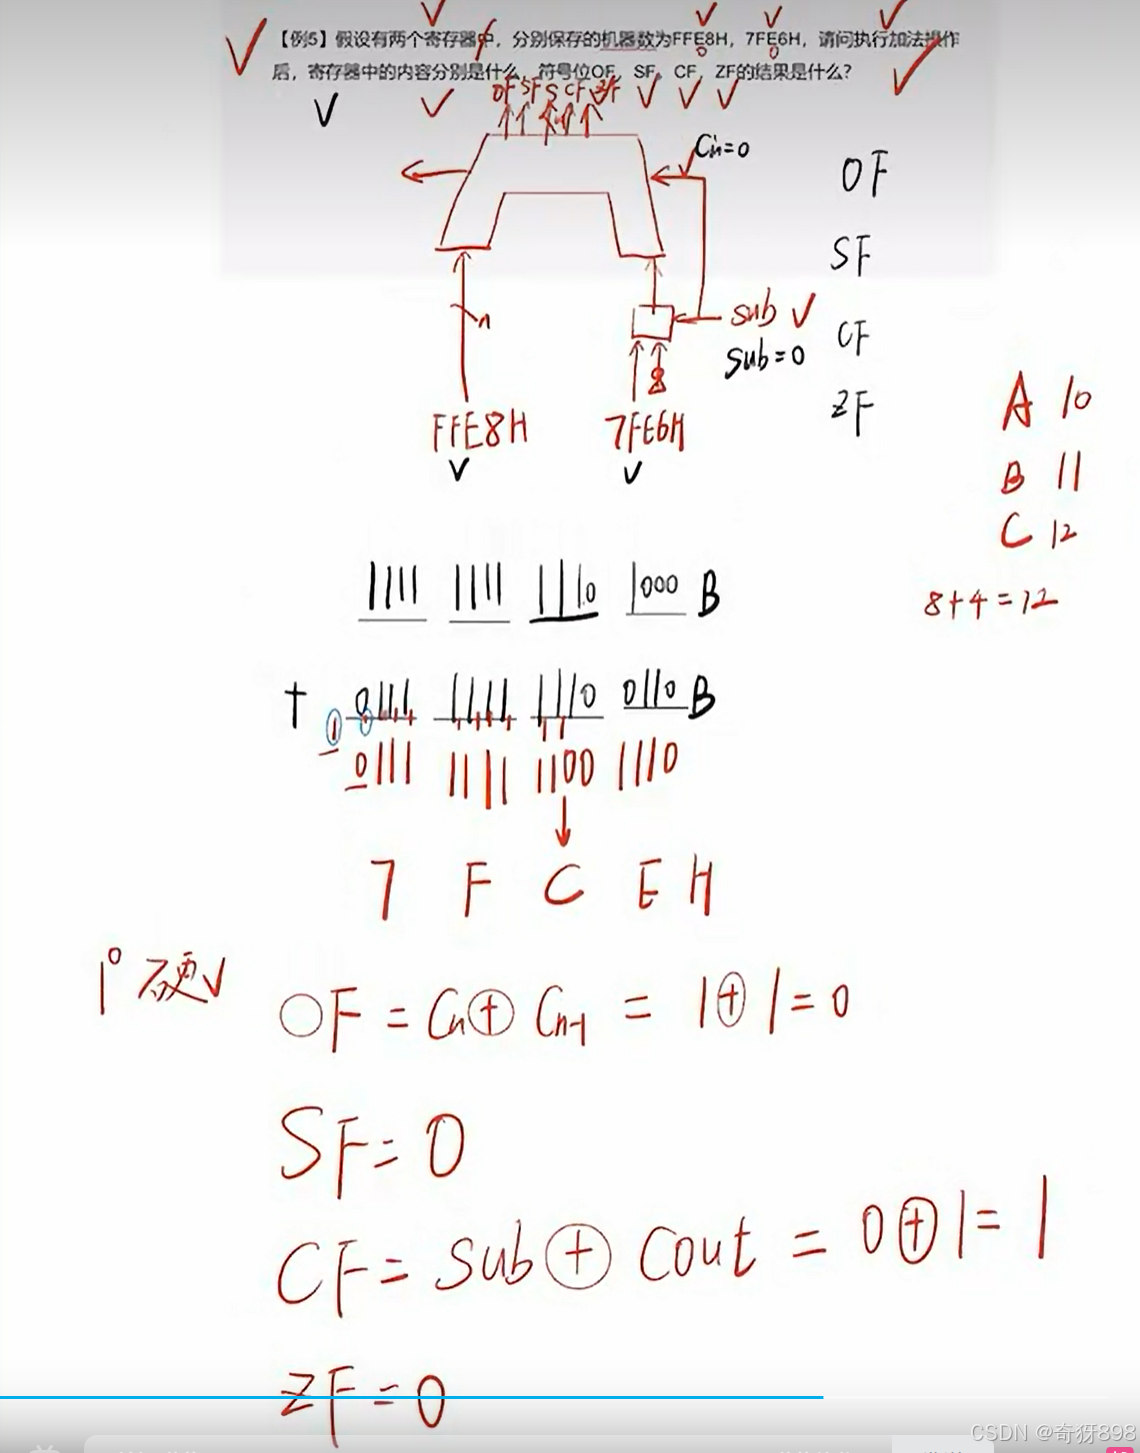 【例5】假设有两个寄存器中，分别保存的机器数为FFE8H，7FE6H，请问执行加法操作
后，寄存器中的内容分别是什么，符号位OF，SF，CF，ZF的结果是什么？
OF SF S CF ZF
Cin=0
OF
SF
n
sub
Sub=0
CF
ZF
FFE8H 7FE6H
A 10
B 11
C 12
8+4=12
1111 1111 1110 1000 B
+ 0111 1111 1110 0110 B
1
0111 1111 1100 1110
7 F C E H
1° 硬
OF = Cn⊕Cn-1 = 1⊕1=0
SF=0
CF= Sub⊕Cout = 0⊕1=1
ZF=0
CSDN @奇犽898